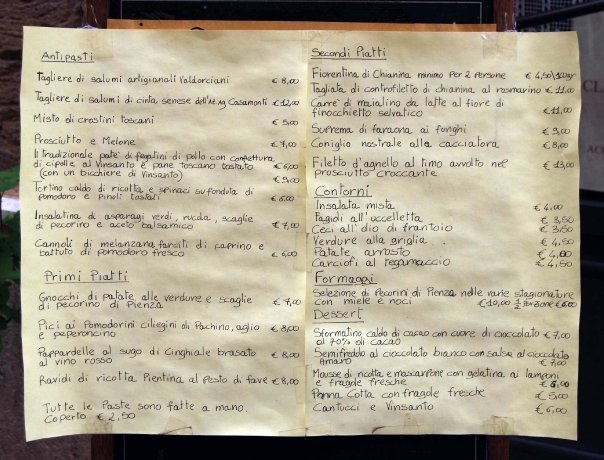 Antipasti
Tagliere di salumi artigianali Valdorciani € 8,00
Tagliere di salumi di cinta senese dell'Az.Ag Casamonti € 12,00
Misto di crostini toscani € 5,00
Prosciutto e Melone € 7,00
Il tradizionale paté di fegatini di pollo con confettura
di cipolle al Vinsanto e pane toscano tostato € 6,00
(con un bicchiere di Vinsanto) € 9,00
Tortino caldo di ricotta e spinaci su fonduta di
pomodoro e pinoli tostati € 6,00
Insalatina di asparagi verdi, rucola, scaglie
di pecorino e aceto balsamico € 7,00
Cannoli di melanzana farciti di caprino e
battuto di pomodoro fresco € 6,00
Primi Piatti
Gnocchi di patate alle verdure e scaglie
di pecorino di Pienza € 7,00
Pici ai Pomodorini ciliegini di Pachino, aglio
e peperoncino € 8,00
Pappardelle al sugo di Cinghiale brasato
al vino rosso € 8,00
Ravioli di ricotta Pientina al pesto di fave € 8,00
Tutte le Paste sono fatte a mano.
Coperto € 2,50
Secondi Piatti
Fiorentina di Chianina minimo per 2 persone € 4,50/100gr
Tagliata di controfiletto di chianina al rosmarino € 11,00
Carre' di maialino da latte al fiore di
finocchietto selvatico € 11,00
Suprema di faraona ai funghi € 9,00
Coniglio nostrale alla cacciatora € 8,00
Filetto d'agnello al timo avvolto nel
prosciutto croccante € 13,00
Contorni
Insalata mista € 4,00
Fagioli all'uccelletta € 3,50
Ceci all'olio di frantoio € 3,50
Verdure alla griglia € 4,50
Patate arrosto € 4,00
Carciofi al tegamaccio € 4,50
Formaggi
Selezione di Pecorini di Pienza nelle varie stagionature
con miele e noci € 10,00 ½ porzione € 6,00
Dessert
Sformatino caldo di cacao con cuore di cioccolato € 7,00
al 70% di cacao
Semifreddo al cioccolato bianco con salsa al cioccolato
Amaro € 7,00
Mousse di ricotta e mascarpone con gelatina ai lamponi
e fragole fresche € 6,00
Panna Cotta con fragole fresche € 5,00
Cantucci e Vinsanto € 6,00